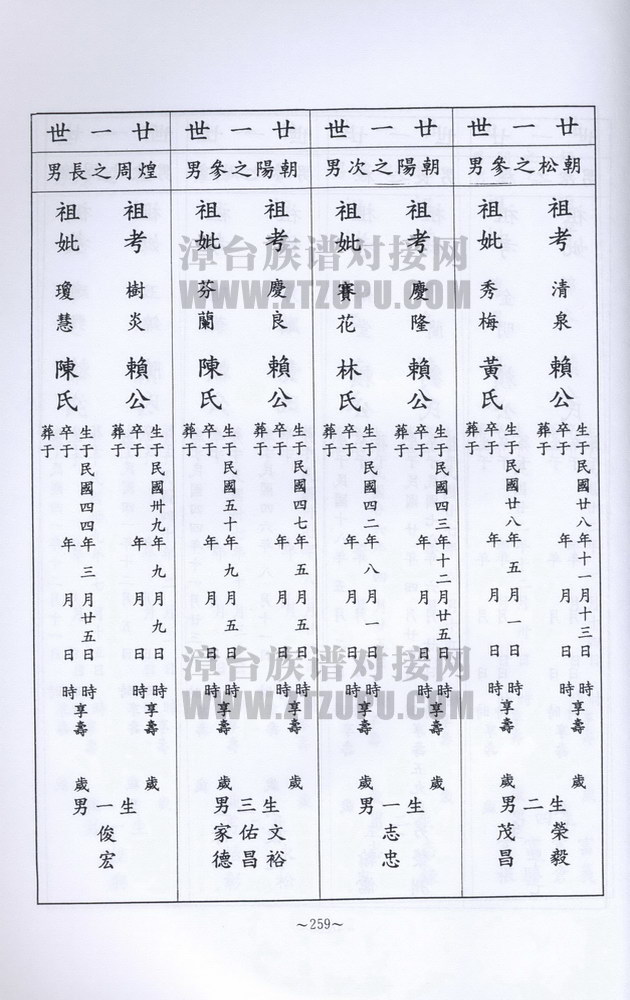 廿一世
朝松之參男
祖考 清泉 賴公
生于民國廿八年十一月十三日 時享壽 歲
卒于 年 月 日 時
葬于
祖妣 秀梅 黃氏
生于民國廿八年五月一日 時享壽 歲
卒于 年 月 日 時
葬于
生二男
榮毅
茂昌
廿一世
朝陽之次男
祖考 慶隆 賴公
生于民國四三年十二月廿五日 時享壽 歲
卒于 年 月 日 時
葬于
祖妣 賽花 林氏
生于民國四二年八月一日 時享壽 歲
卒于 年 月 日 時
葬于
生一男
志忠
廿一世
朝陽之參男
祖考 慶良 賴公
生于民國四七年五月五日 時享壽 歲
卒于 年 月 日 時
葬于
祖妣 芬蘭 陳氏
生于民國五十年九月五日 時享壽 歲
卒于 年 月 日 時
葬于
生三男
文裕
佑昌
家德
廿一世
煌周之長男
祖考 樹炎 賴公
生于民國卅九年九月九日 時享壽 歲
卒于 年 月 日 時
葬于
祖妣 瓊慧 陳氏
生于民國四四年三月廿五日 時享壽 歲
卒于 年 月 日 時
葬于
生一男
俊宏
～259～
漳台族谱对接网
WWW.ZTZUPU.COM
漳台族谱对接网
WWW.ZTZUPU.COM